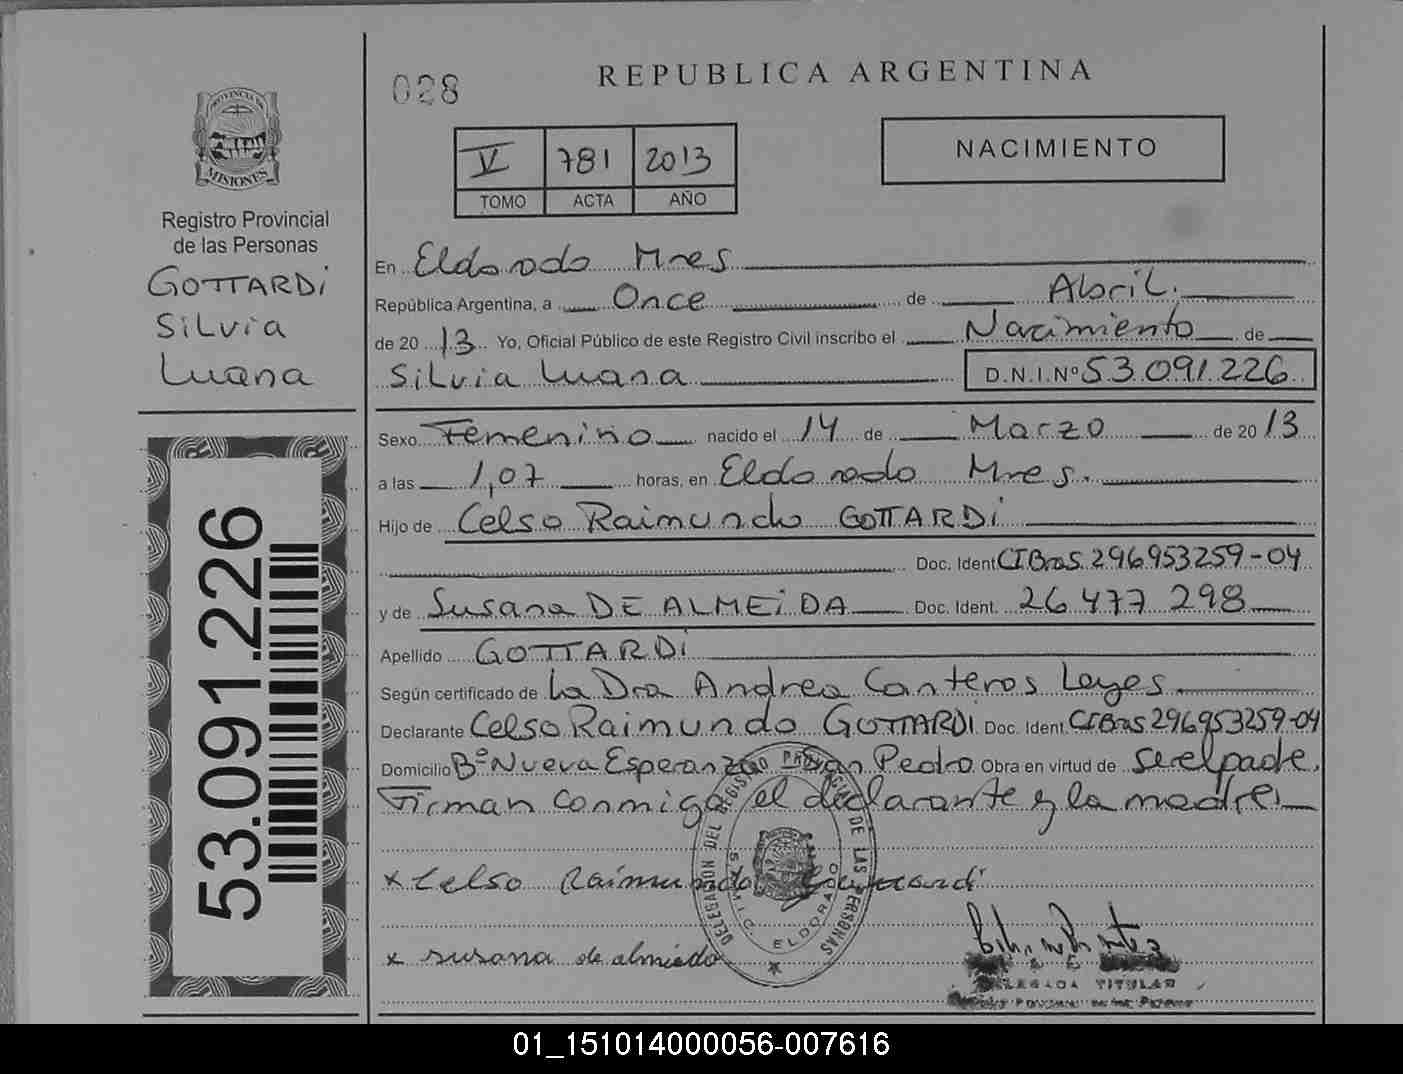 028
REPUBLICA ARGENTINA
PROVINCIA DE
MISIONES
Registro Provincial
de las Personas
GOTTARDI
SILVIA
Luana
V 781 2013
TOMO ACTA AÑO
NACIMIENTO
En Eldorado Mnes
República Argentina, a Once de Abril.
de 20 13 Yo, Oficial Público de este Registro Civil inscribo el Nacimiento de
Silvia Luana D.N.I.Nº 53.091.226
Sexo Femenino nacido el 14 de Marzo de 20 13
a las 1,07 horas, en Eldorado Mnes.
Hijo de Celso Raimundo GOTTARDI
Doc. Ident CI Bras 296953259-04
y de Susana DE ALMEIDA Doc. Ident. 26 477 298
Apellido GOTTARDI
Según certificado de La Dra Andrea Canteros Leyes
Declarante Celso Raimundo GOTTARDI Doc. Ident CI Bras 296953259-04
Domicilio Bº Nueva Esperanza San Pedro Obra en virtud de ser el padre.
Firman conmigo el declarante y la madre.
x Celso Raimundo Gottardi
x susana de almeida
DELEGACION DEL REGISTRO PROVINCIAL DE LAS PERSONAS
ELDORADO
DELEGADA TITULAR
53.091.226
01_151014000056-007616